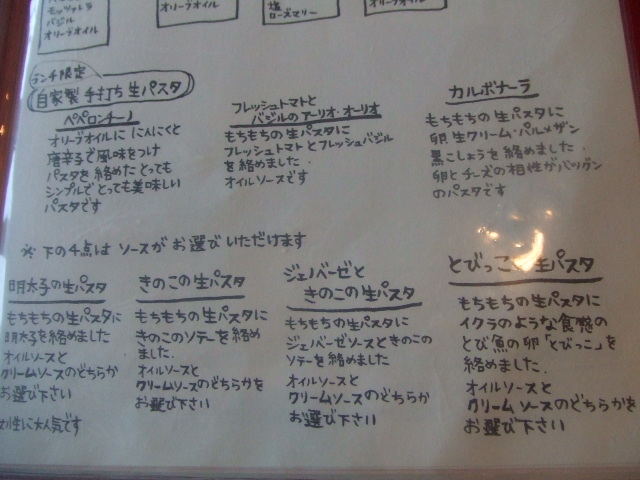 モッツァレラ
バジル
オリーブオイル
オリーブオイル
塩
ローズマリー
オリーブオイル
ランチ限定
自家製 手打ち 生パスタ
ペペロンチーノ
オリーブオイルに にんにくと
唐辛子で風味をつけ
パスタを絡めた とっても
シンプルで とっても美味しい
パスタです
フレッシュトマトと
バジルのアーリオ・オーリオ
もちもちの生パスタに
フレッシュトマトとフレッシュバジル
を絡めました.
オイルソースです
カルボナーラ
もちもちの生パスタに
卵 生クリーム・パルメザン
黒こしょうを絡めました.
卵とチーズの相性がバツグン
のパスタです
※ 下の4点は ソースが お選び いただけます
明太子の生パスタ
もちもちの生パスタに
明太子を絡めました
オイルソースと
クリームソースのどちらか
お選び下さい
女性に大人気です
きのこの生パスタ
もちもちの生パスタに
きのこのソテーを絡め
ました.
オイルソースと
クリームソースのどちらかを
お選び下さい
ジェノバーゼと
きのこの生パスタ
もちもちの生パスタに
ジェノバーゼソースときのこの
ソテーを絡めました
オイルソースと
クリームソースのどちらか
お選び下さい
とびっこの生パスタ
もちもちの生パスタに
イクラのような食感の
とび魚の卵「とびっこ」を
絡めました.
オイルソースと
クリームソースのどちらかを
お選び下さい